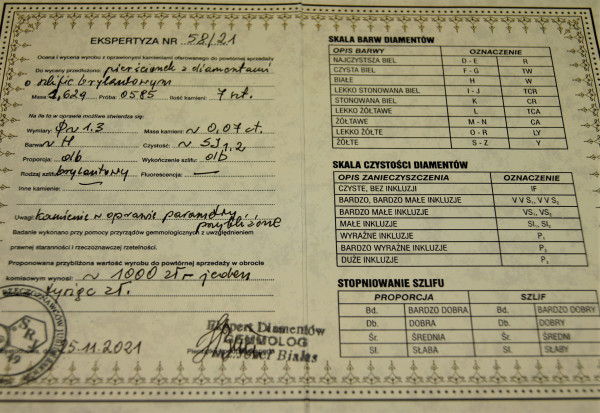 EKSPERTYZA NR 58/21
Ocena i wycena wyrobu z oprawionymi kamieniami oferowanego do powtórnej sprzedaży
Do wyceny przedłożono: pierścionek z diamentami
o szlifie brylantowym
Masa 1,62g Próba 0585 Ilość kamieni: 7 szt.
Na ile to w oprawie możliwe stwierdza się:
Wymiary: ϕ~1.3 Masa kamieni: ~ 0,07 ct.
Barwa ~ H Czystość: ~ SJ1,2
Proporcja: db Wykończenie szlifu: db
Rodzaj szlifu brylantowy Fluorescencja: —
Inne kamienie: —
Uwagi: kamienie w oprawie parametry
przybliżone
Badanie wykonano przy pomocy przyrządów gemmologicznych z uwzględnieniem
prawnej staranności i rzeczoznawczej rzetelności.
Proponowana przybliżona wartość wyrobu do powtórnej sprzedaży w obrocie
komisowym wynosi: ~ 1000 zł – jeden
tysiąc zł.
25.11.2021
Ekspert Diamentów
GEMMOLOG
SKALA BARW DIAMENTÓW
OPIS BARWY OZNACZENIE
NAJCZYSTSZA BIEL D - E R
CZYSTA BIEL F - G TW
BIAŁE H W
LEKKO STONOWANA BIEL I - J TCR
STONOWANA BIEL K CR
LEKKO ŻÓŁTAWE L TCA
ŻÓŁTAWE M - N CA
LEKKO ŻÓŁTE O - R LY
ŻÓŁTE S - Z Y
SKALA CZYSTOŚCI DIAMENTÓW
OPIS ZANIECZYSZCZENIA OZNACZENIE
CZYSTE, BEZ INKLUZJI IF
BARDZO, BARDZO MAŁE INKLUZJE V V S₁, V V S₂
BARDZO MAŁE INKLUZJE VS₁, VS₂
MAŁE INKLUZJE SI₁, SI₂
WYRAŹNE INKLUZJE P₁
BARDZO WYRAŹNE INKLUZJE P₂
DUŻE INKLUZJE P₃
STOPNIOWANIE SZLIFU
PROPORCJA SZLIF
Bd. BARDZO DOBRA Bd. BARDZO DOBRY
Db. DOBRA Db. DOBRY
Śr. ŚREDNIA Śr. ŚREDNI
Sł. SŁABA Sł. SŁABY